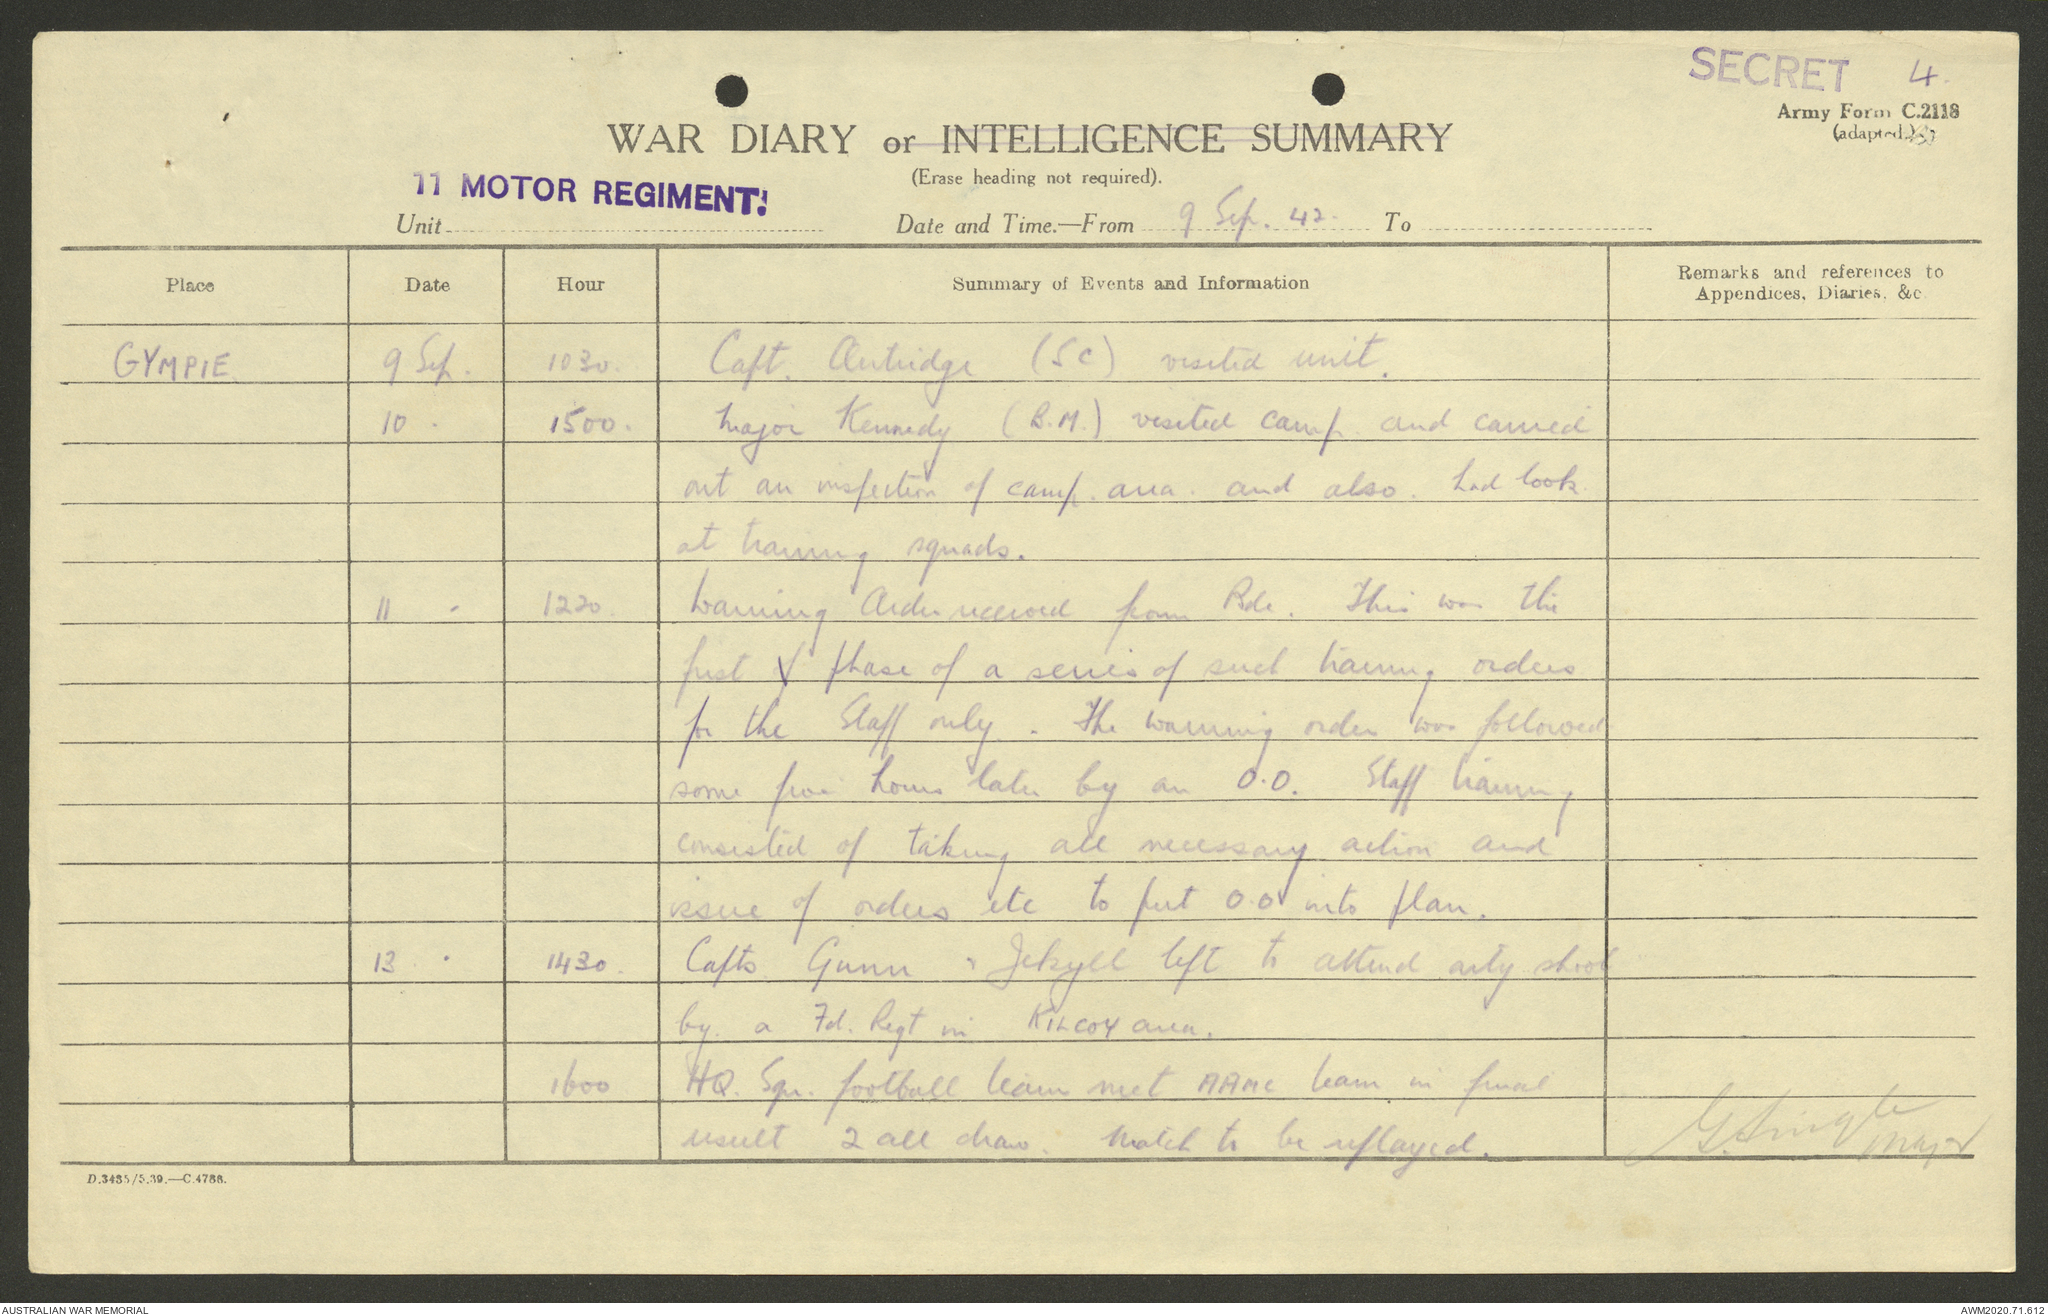 SECRET 4.
Army Form C.2118
(adapted.)
WAR DIARY or INTELLIGENCE SUMMARY
(Erase heading not required).
11 MOTOR REGIMENT.
Unit Date and Time.—From 9 Sep. 42. To
Place Date Hour Summary of Events and Information Remarks and references to Appendices, Diaries, &c.
GYMPIE. 9 Sep. 1030. Capt. (SC) visited unit.
10 . 1500. Major Kennedy (B.M.) visited camp and carried
out an inspection of camp area and also had look
at training squads.
11 . 1220. Warning Order received from Bde. This was the
first phase of a series of such training orders
for the Staff only. The warning order was followed
some five hours later by an O.O. Staff training
consisted of taking all necessary action and
issue of orders etc to put O.O into plan.
13 . 1430. Capts Gunn & Jekyll left to attend arty shoot
by a Fd. Regt in KILCOY area.
1600 HQ. Sqn. football team met AAMC team in final
result 2 all draw. Match to be replayed.
Major
D.3485/5.39.—C.4788.
AUSTRALIAN WAR MEMORIAL
AWM2020.71.612